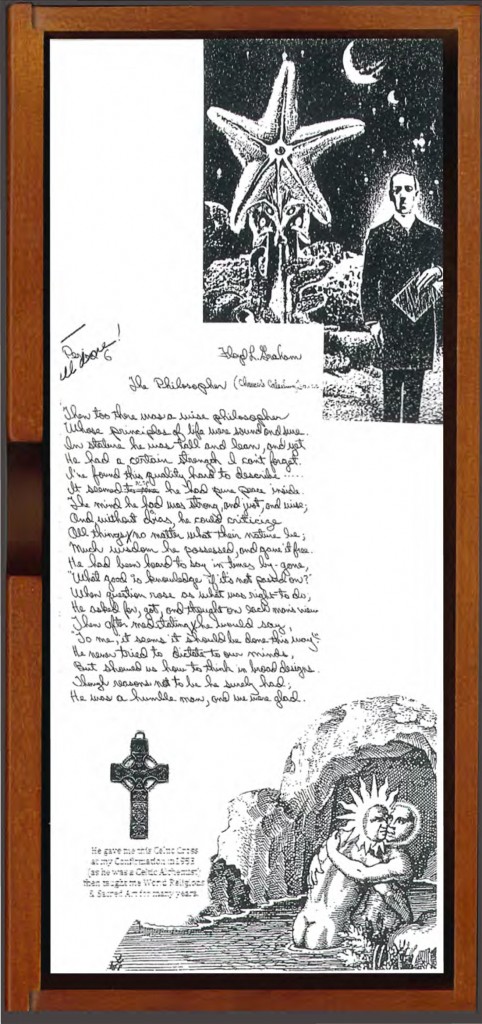 Floyd L. Graham
The Philosopher (Chaucer's
Then too there was a wise philosopher
Whose principles of life were sound and sure.
In stature he was tall and lean, and yet
He had a certain strength I can't forget.
I've found this quality hard to describe .....
It seemed he had pure peace inside.
The mind he had was strong, and just, and wise;
And without bias, he could criticize
All things, no matter what their nature be;
Much wisdom he possessed, and gave it free.
He had been heard to say in times by-gone,
"What good is knowledge if it's not passed on?"
When question rose as what was right to do,
He asked for, got, and thought on each man's view
Then after meditating, he would say,
"To me, it seems it should be done this way."
He never tried to dictate to our minds,
But showed us how to think in broad designs.
Though reasons not to be he surely had;
He was a humble man, and we were glad.
He gave me this Celtic Cross
at my Confirmation in
(as he was a Celtic Alchemist)
then taught me World Religions
& Sacred Art for many years.